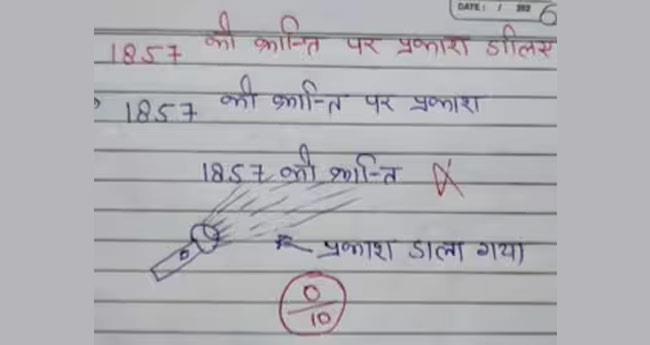 DATE: / 202 6
1857 की क्रान्ति पर प्रकाश डालिए
1857 की क्रान्ति पर प्रकाश
1857 की क्रान्ति
प्रकाश डाला गया
0/10